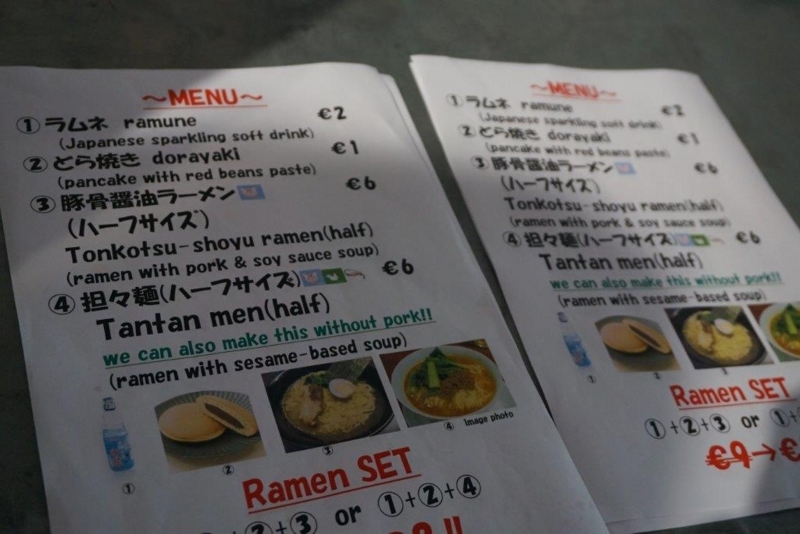 ~MENU~
①ラムネ ramune €2
(Japanese sparkling soft drink)
②どら焼き dorayaki €1
(pancake with red beans paste)
③豚骨醤油ラーメン €6
(ハーフサイズ)
Tonkotsu-shoyu ramen(half)
(ramen with pork & soy sauce soup)
④担々麺(ハーフサイズ) €6
Tantan men(half)
we can also make this without pork!!
(ramen with sesame-based soup)
①
②
③
④ Image photo
Ramen SET
+②+③ or ①+②+④
~MENU~
①ラムネ ramune €2
(Japanese sparkling soft drink)
②どら焼き dorayaki €1
(pancake with red beans paste)
③豚骨醤油ラーメン €6
(ハーフサイズ)
Tonkotsu-shoyu ramen(half)
(ramen with pork & soy sauce soup)
④担々麺(ハーフサイズ) €6
Tantan men(half)
we can also make this without pork!!
(ramen with sesame-based soup)
①
②
③
Ramen SET
①+②+③ or ①+
€9→€